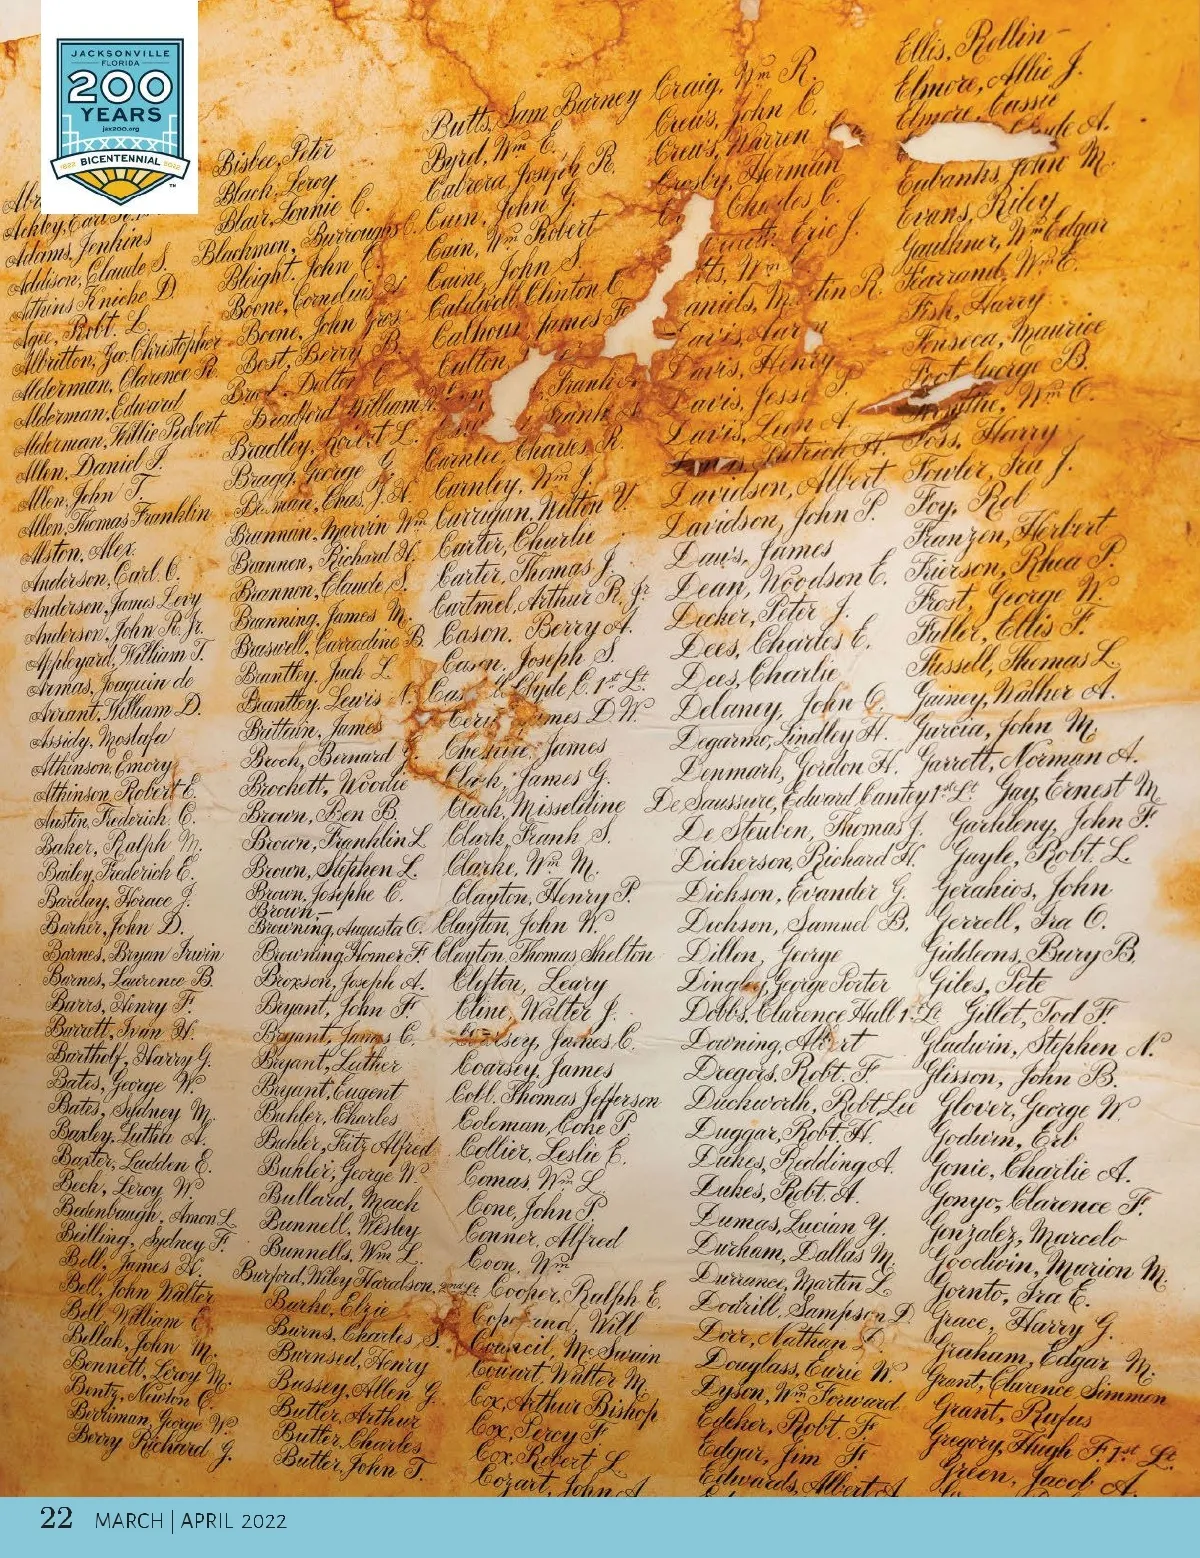 JACKSONVILLE
FLORIDA
200
YEARS
jax200.org
1822 BICENTENNIAL 2022
TM
Adams, Jenkins
Addison, Claude S.
Athins Kniche D.
Agie, Robt. L.
Albritton, Geo. Christopher
Alderman, Clarence R.
Alderman, Edward
Alderman, Willie Robert
Allen, Daniel J.
Allen, John T.
Allen, Thomas Franklin
Alston, Alex.
Anderson, Carl C.
Anderson, James Levy
Anderson, John R. Jr.
Appleyard, William T.
Armas, Joaquin de
Arrant, William D.
Assidy, Mostafa
Atkinson, Emory
Atkinson, Robert E.
Austin, Frederick C.
Baker, Ralph M.
Bailey, Frederick E.
Barclay, Horace J.
Barker, John D.
Barnes, Bryan Irwin
Barnes, Laurence B.
Barrs, Henry F.
Barrett, Ivan H.
Bartholf, Harry G.
Bates, George W.
Bates, Sydney M.
Baxley, Luther A.
Baxter, Ludden E.
Beck, Leroy W.
Bedenbaugh, Amon L.
Beilling, Sydney F.
Bell, James H.
Bell, John Walter
Bell, William E
Bellah, John M.
Bennett, Leroy M.
Bentz, Newton C.
Berriman, George W.
Berry Richard G.
Bisbee, Peter
Black, Leroy
Blair, Lonnie C.
Blackmon, Burroughs C.
Blight, John C.
Boone, Cornelius
Boone, John
Bost, Berry B.
Bradford William
Bradley, Robert L.
Bragg, George G.
Chas. J. H.
Brannan, Marvin Wm
Brannen, Richard H.
Brannon, Claude S.
Branning, James M.
Braswell, Carradine B.
Brantley, Jack L.
Brantley, Lewis N.
Brittain, James
Brock, Bernard J.
Brockett, Woodie
Brown, Ben B.
Brown, Franklin L
Brown, Stephen L.
Brown, Josephe C.
Brown,
Browning, Augusta C.
Browning, Homer F.
Broxson, Joseph A.
Bryant, John F.
Bryant, James C.
Bryant, Luther
Bryant, Eugent
Buhler, Charles
Buhler, Fritz Alfred
Buhler, George W.
Bullard, Mack
Bunnell, Wesley
Bunnells, Wm L.
Burford, Wiley Haralson, 2nd Lt
Burke, Elzie
Burns, Charles S.
Burnsed, Henry
Bussey, Allen G.
Butler, Arthur
Butler, Charles
Butler, John T.
Butts, Sam Barney
Byrd, Wm E.
Cabrera, Joseph R.
Cain, John J.
Cain, Wm Robert
Caine, John S.
Caldwell, Clinton C
Calhoun, James F
Frank A
Frank A.
Carnlee, Charles R.
Carnley, Wm J.
Carrigan, Wilton V.
Carter, Charlie
Carter, Thomas J.
Cartmel, Arthur R. Jr
Cason, Berry A.
Cason, Joseph S.
Clyde C. 1st Lt.
James D W.
James
James G.
Clark, Misseldine
Clark, Frank S.
Clarke, Wm M.
Clayton, Henry P.
Clayton, John W.
Clayton, Thomas Shelton
Clifton, Leary
Cline, Walter J.
James C.
Coarsey, James
Cobb, Thomas Jefferson
Coleman, Coke P
Collier, Leslie E.
Comas, Wm L
Cone, John P.
Conner, Alfred
Coon, Wm
Cooper, Ralph E.
Will
Council, McSwain
Cowart, Walter M.
Cox, Arthur Bishop
Cox, Percy F
Cox, Robert L.
Cozart, John A.
Craig, Wm R.
Crews, John C.
Crews, Warren
Crosby, Herman
Charles C.
Eric J.
Wm
Davis, Henry
Davis, Jessi P
Davis, Leon A.
Patrick H.
Davidson, Albert
Davidson, John P.
Davis, James
Dean, Woodson E.
Decker, Peter J.
Dees, Charles E.
Dees, Charlie
Delaney, John C.
Degarmo, Lindley H.
Denmark, Gordon H.
De Saussure, Edward Cantey 1st Lt.
De Steuben, Thomas J.
Dickerson, Richard H.
Dickson, Evander G.
Dickson, Samuel B.
Dillon, George
Dingley, George Porter
Dobbs, Clarence Hall 1st Lt
Downing, Albert
Dregors, Robt. F.
Duckworth, Robt. Lee
Duggar, Robt. H.
Dukes, Redding A.
Dukes, Robt. A.
Dumas, Lucian Y.
Durham, Dallas M.
Durrance, Martin L
Dodrill, Sampson D.
Dorr, Nathan D.
Douglass, Eurie W.
Dyson, Wm Forward
Edeker, Robt. F.
Edgar, Jim F.
Edwards, Albert A.
Ellis, Rollin
Elmore, Allie J.
Elmore, Cassie
Clyde A.
Eubanks, John M.
Evans, Riley
Gaulkner, Wm Edgar
Farrand, Wm E.
Fish, Harry
Fonseca, Maurice
Foot George B.
Wm C.
Foss, Harry
Fowler, Ira J.
Foy, Rob
Franzen, Herbert
Frierson, Rhea P.
Frost, George W.
Fuller, Ellis F.
Fussell, Thomas L.
Gainey, Walker A.
Garcia, John M.
Garrett, Norman A.
Gay, Ernest M
Garkleny, John F.
Gayle, Robt. L.
Gerakios, John
Gerrell, Ira C.
Giddeons, Bury B.
Giles, Pete
Gillet, Tod F.
Gladwin, Stephen N.
Glisson, John B.
Glover, George W
Godwin, Erb
Gonie, Charlie A.
Gonyo, Clarence F.
Gonzalez, Marcelo
Goodwin, Marion M.
Gornto, Ira E.
Grace, Harry G.
Graham, Edgar M.
Grant, Clarence Simmon
Grant, Rufus
Gregory, Hugh F. 1st Lt.
Green, Jacob A.
22 MARCH | APRIL 2022